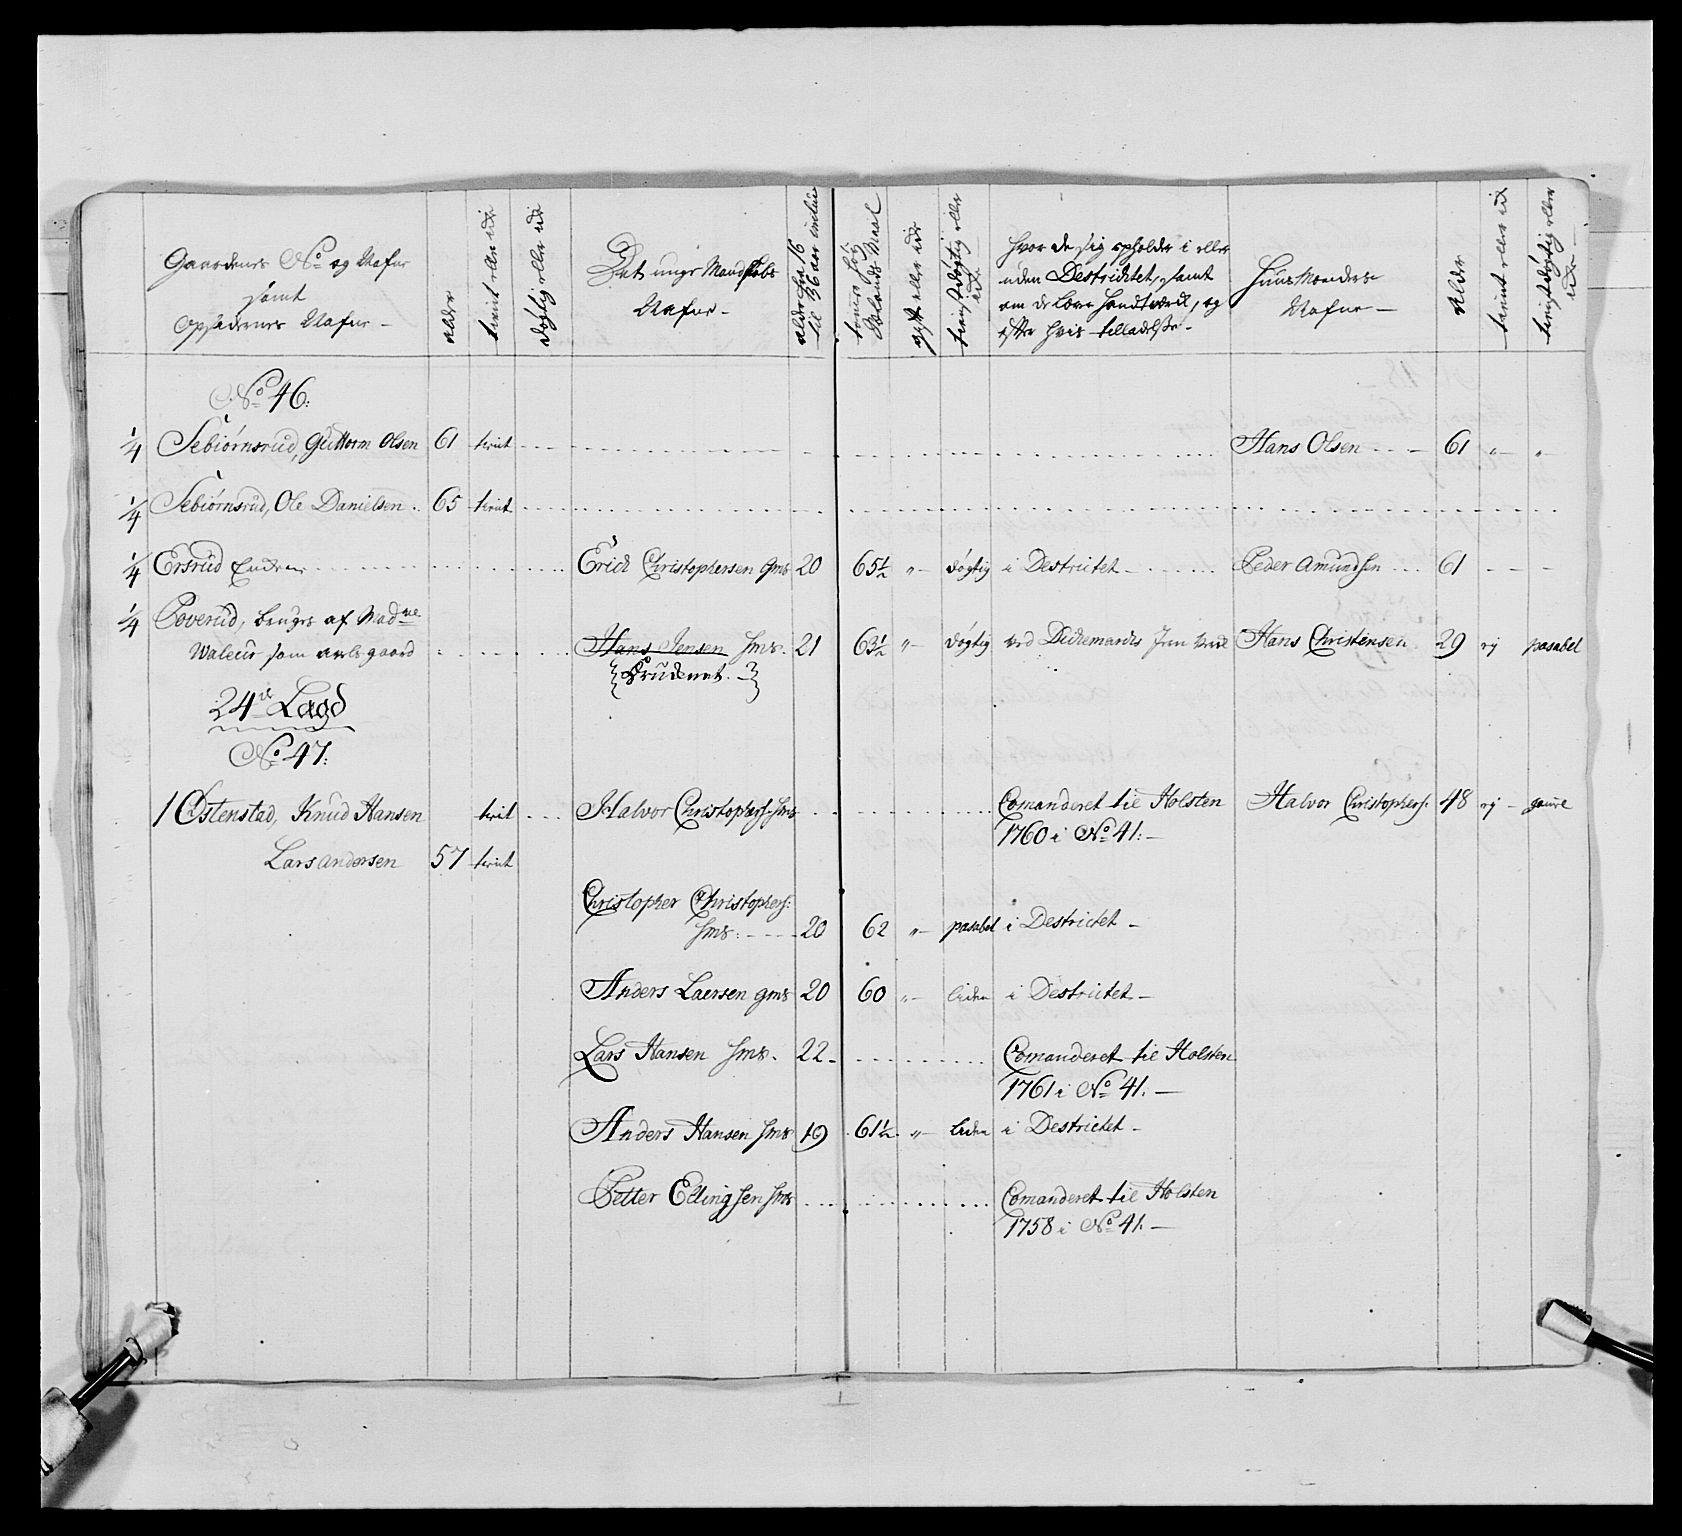 Gaardenes No og Nafne
samt
Opsidernes Nafne -
alder
tient eller ei
døgtig eller ei
Det unge Mandskabs
Nafne -
alder fra 16
til 36 aar inclus
tomer høy
Selands Maal
gift eller ei
tienstdøgtig eller
ei
hvor de sig opholder i eller
uden Destrichtet, samt
om de lærer Handtværck, og
efter hvis tilladelse -
Huusmændenes
Nafne -
alder
tient eller ei
tienstdøgtig eller
ei
No 46:
1/4 Sebiørnsrud, Guttorm Olsen 61 tient Hans Olsen 61 " "
1/4 Sebiørnsrud, Ole Danielsen 65 tient
1/4 Ersrud Erich Christophersen gms 20 65½ " døgtig i Destrictet Peder Amundsen 61
1/4 Poverud, bruges af Madme
som avels gaard Hans Jensen hms. 21 63½ " døgtig ved Hans Christensen 29 ey pasabel
24de Lægd
No 47:
1 Østenstad, Knud Hansen tient Halvor Christophers: hms Comanderet til Holsten Halvor Christophers: 48 ey
1760 i No 41:
Lars Andersen 57 tient
Christopher Christophers:
hms: 20 62 " pasabel i Destrictet
Anders Laersen gms 20 60 " liden i Destrictet
Lars Hansen hms. 22 Comanderet til Holsten
1761 i No 41:
Anders Hansen hms 19 61½ " liden i Destrictet
Petter Ellingsen hms Comanderet til Holsten
1758 i No 41: